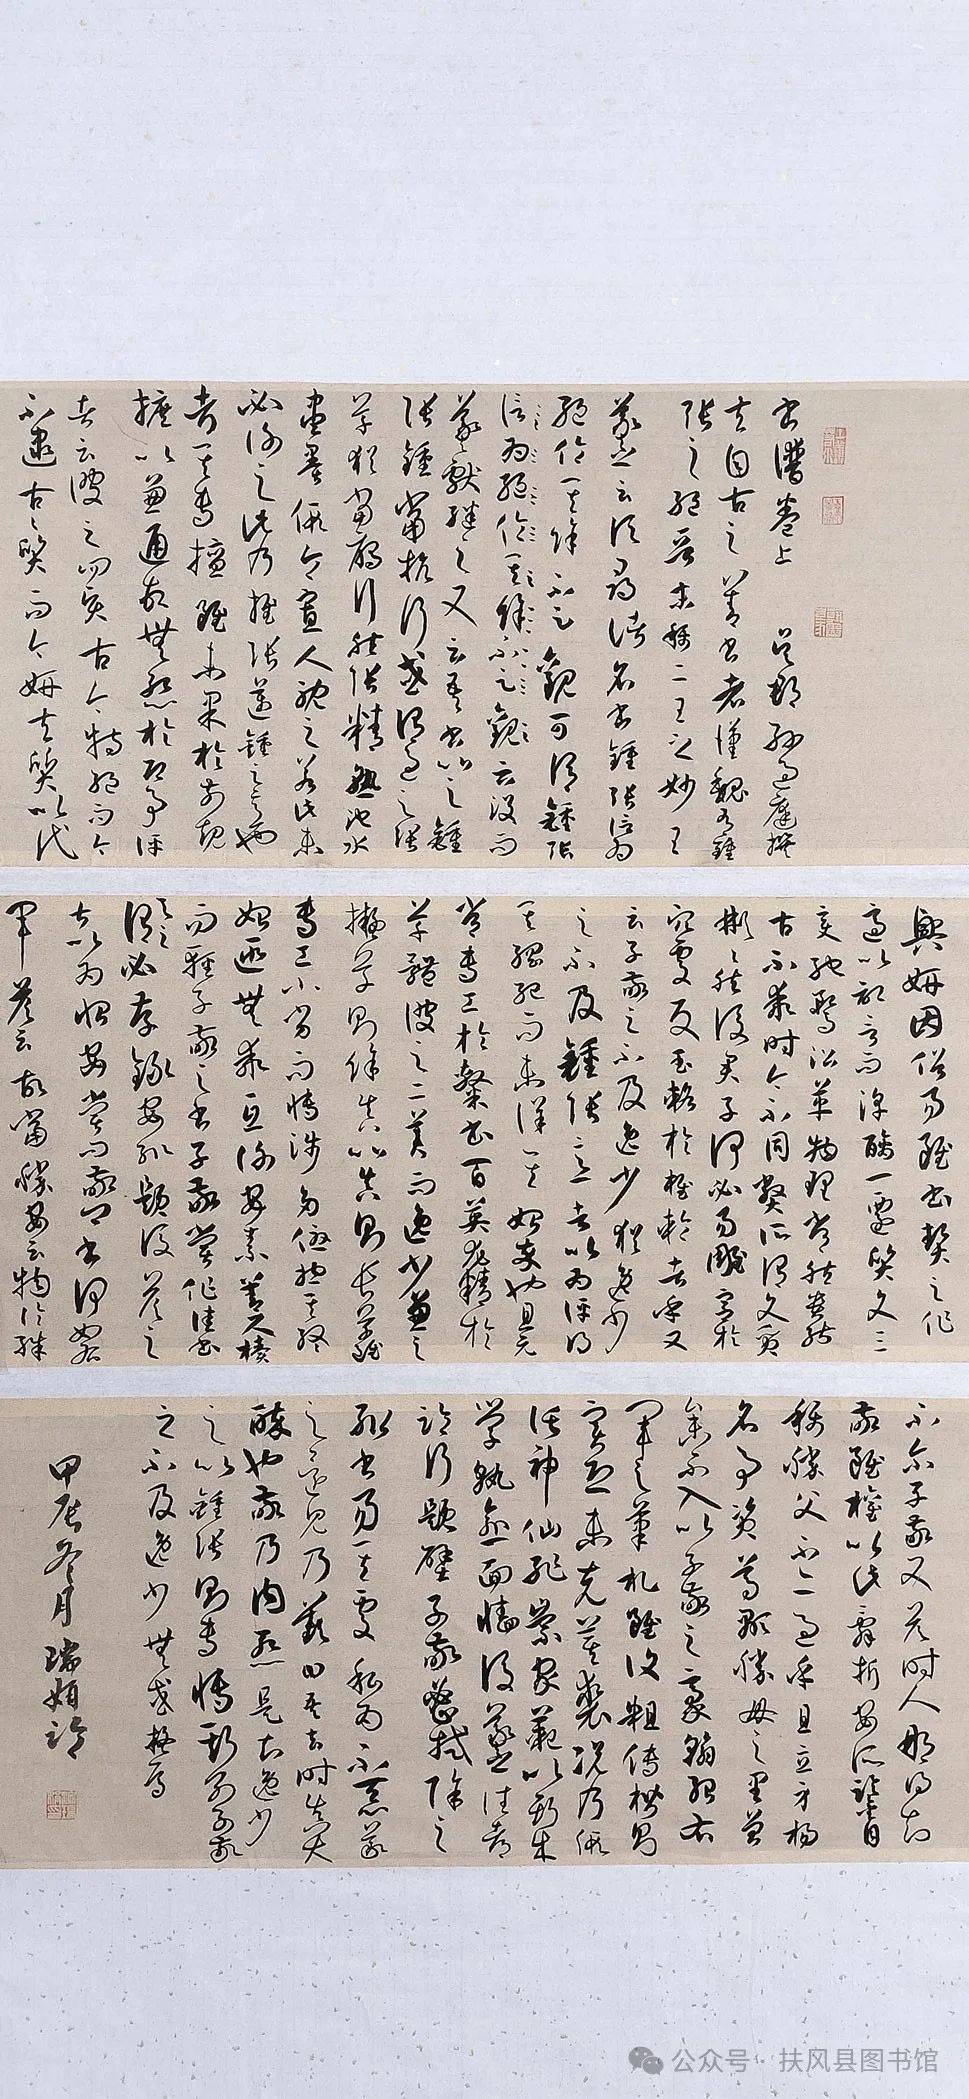 書譜卷上 吳郡孫過庭撰
夫自古之善書者漢魏有鍾
張之絕晉末稱二王之妙王
羲之云頃尋諸名書鍾張信為
絕倫其餘不足觀可謂鍾張
信為絕倫其餘不足觀云沒而
羲獻繼之又云吾書比之鍾
張鍾當抗行或謂過之張
草猶當雁行然張精熟池水
盡墨假令寡人耽之若此未
必謝之此乃推張邁鍾之意也
考其專擅雖未果於前規
摭以兼通故無慚於即事評
者云彼之四賢古今特絕而今
不逮古古質而今妍夫質以代
興妍因俗易雖書契之作
適以記言而淳醨一遷質文三
變馳騖沿革物理常然貴能
古不乖時今不同弊所謂文質
彬彬然後君子何必易雕宮於
穴處反玉輅於椎輪者乎又
云子敬之不及逸少猶逸少
之不及鍾張意者以為評得
其綱紀而未詳其始卒也且元
常專工於隸書百英尤精於
草體彼之二美而逸少兼之
擬草則餘真比真則長草雖
專工小劣而博涉多優總其終
始匪無乖互謝安素善尺牘
而輕子敬之書子敬嘗作佳書
與之謂必存錄安輒題後答之
甚以為恨安嘗問敬卿書何如右
軍答云故當勝安云物論殊
不爾子敬又答時人那得知
敬雖權以此辭折安所鑒自
稱勝父不亦過乎且立身揚
名事資尊顯勝母之里曾
參不入以子敬之豪翰紹右
軍之筆札雖復粗傳楷則
實恐未克箕裘況乃假
託神仙恥崇家範以斯成
學孰愈面牆後羲之往都
臨行題壁子敬密拭除之
輒書易其處私為不惡羲
之還見乃歎曰吾去時真大
醉也敬乃內慚是知逸少
之比鍾張則專博斯別子敬
之不及逸少無或疑焉
甲辰冬月 瑞娟臨
公众号 · 扶风县图书馆